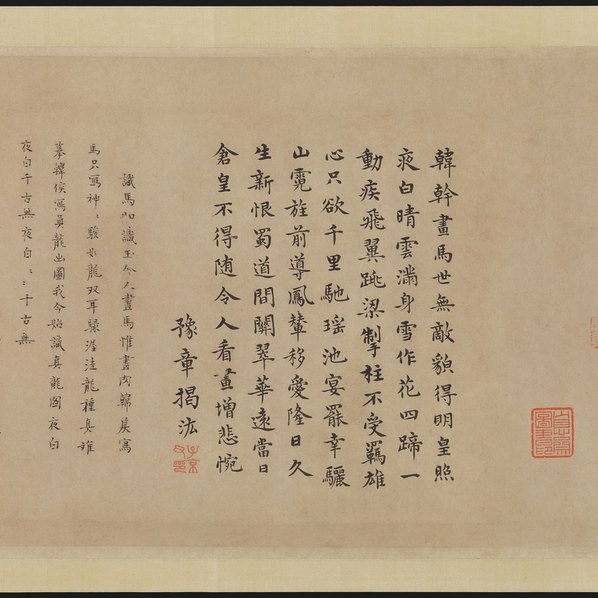 韓幹畫馬世無敵貌得明皇照
夜白晴雲滿身雪作花四蹄一
動疾飛翼跳梁掣柱不受羈雄
心只欲千里馳瑶池宴罷幸驪
山霓旌前導鳳輦移愛隆日久
生新恨蜀道間關翠華遠當日
倉皇不得随令人看畫增悲惋
豫章揭汯
識馬如識玉令人畫馬惟畫肉韓矦寫
馬只寫神〻駿如龍双耳渥洼龍種真難
摹韓矦寫真龍出圖我今始識真龍圖夜白
夜白千古無夜白〻〻千古無